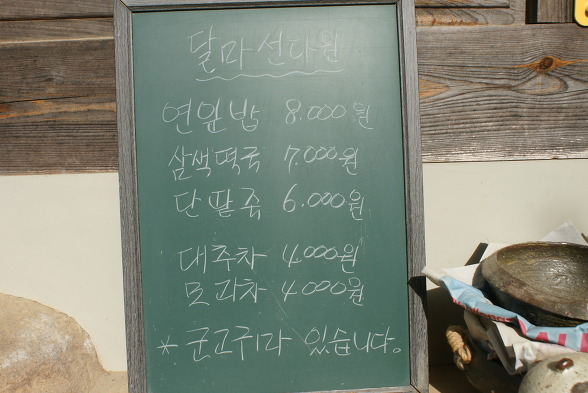 달마선다원
연잎밥 8.000원
삼색떡국 7.000원
단팥죽 6.000원
대추차 4.000원
모과차 4.000원
* 군고구마 있습니다.